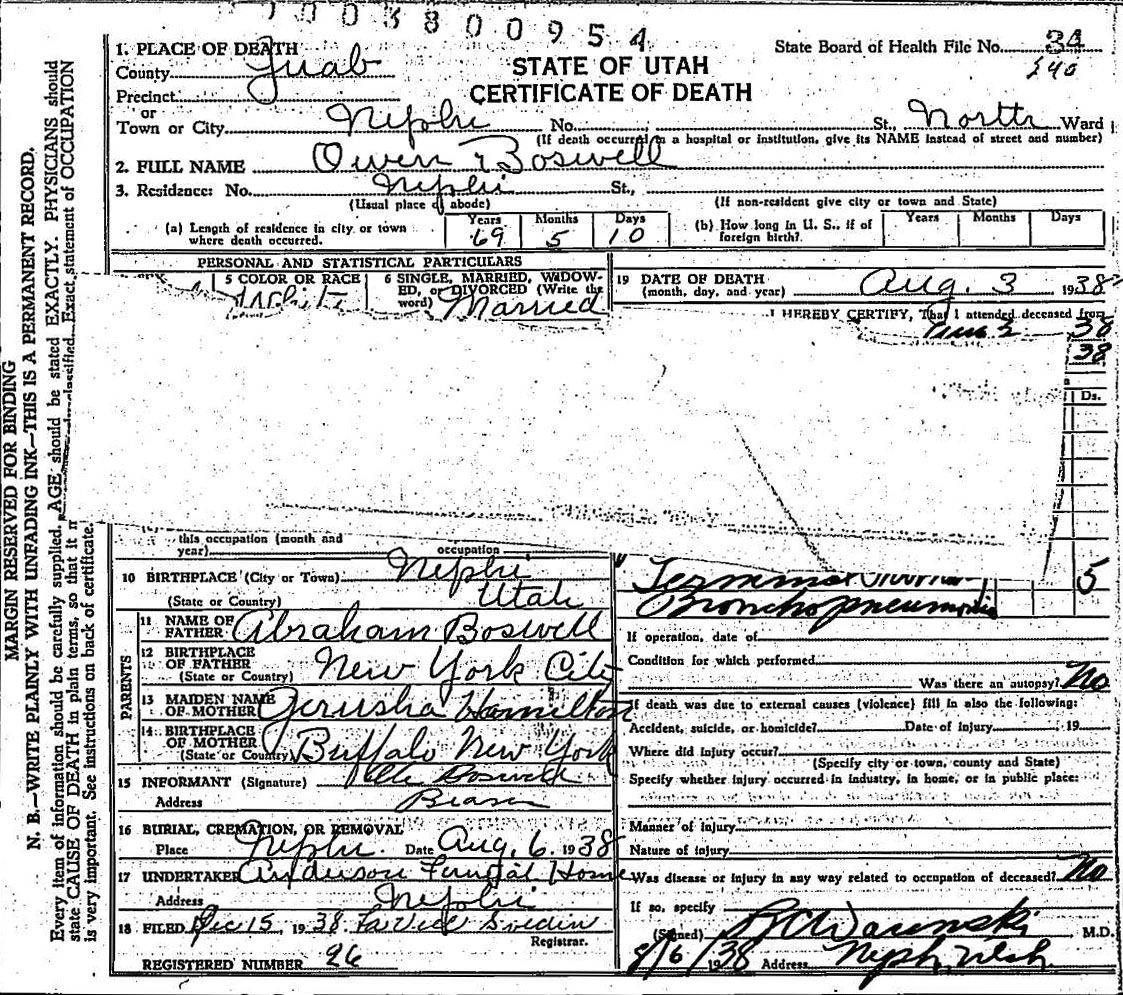 1003800954
1. PLACE OF DEATH
County Juab
Precinct
or
Town or City Nephi No. St., North Ward
State Board of Health File No. 34
240
STATE OF UTAH
CERTIFICATE OF DEATH
(If death occurred in a hospital or institution, give its NAME instead of street and number)
2. FULL NAME Owen Boswell
3. Residence: No. Nephi St.,
(Usual place of abode) (If non-resident give city or town and State)
(a) Length of residence in city or town where death occurred. Years 69 Months 5 Days 10
(b) How long in U. S., if of foreign birth? Years Months Days
PERSONAL AND STATISTICAL PARTICULARS
5 COLOR OR RACE White
6 SINGLE, MARRIED, WIDOWED, or DIVORCED (Write the word) Married
19 DATE OF DEATH
(month, day, and year) Aug. 3 1938
I HEREBY CERTIFY, That I attended deceased from
38
38
Ds.
this occupation (month and
year) occupation
10 BIRTHPLACE (City or Town) Nephi
(State or Country) Utah
PARENTS
11 NAME OF FATHER Abraham Boswell
12 BIRTHPLACE OF FATHER
(State or Country) New York City
13 MAIDEN NAME OF MOTHER Jerusha Hamilton
14 BIRTHPLACE OF MOTHER
(State or Country) Buffalo New York
15 INFORMANT (Signature) Boswell
Address
16 BURIAL, CREMATION, OR REMOVAL
Place Nephi. Date Aug. 6. 1938
17 UNDERTAKER Anderson Funeral Home
Address Nephi
18 FILED Dec 15, 1938.
Registrar.
REGISTERED NUMBER 26
Terminal 5
Bronchopneumonia
If operation, date of
Condition for which performed
Was there an autopsy? No
If death was due to external causes (violence) fill in also the following:
Accident, suicide, or homicide? Date of injury 19
Where did injury occur?
(Specify city or town, county and State)
Specify whether injury occurred in industry, in home, or in public place:
Manner of injury
Nature of injury
Was disease or injury in any way related to occupation of deceased? No
If so, specify
(Signed) M.D.
8/6/1938 Address Neph, Utah
MARGIN RESERVED FOR BINDING
N. B.—WRITE PLAINLY WITH UNFADING INK—THIS IS A PERMANENT RECORD.
Every item of information should be carefully supplied. AGE should be stated EXACTLY. PHYSICIANS should
state CAUSE OF DEATH in plain terms, so that it classified. Exact statement of OCCUPATION
is very important. See instructions on back of certificate.